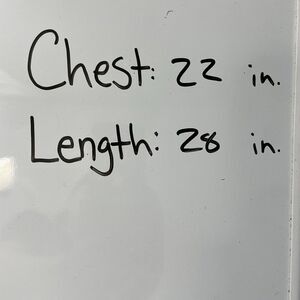 Chest: 22 in.
Length: 28 in.